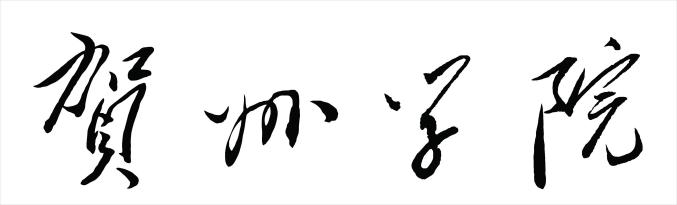 賀州学院